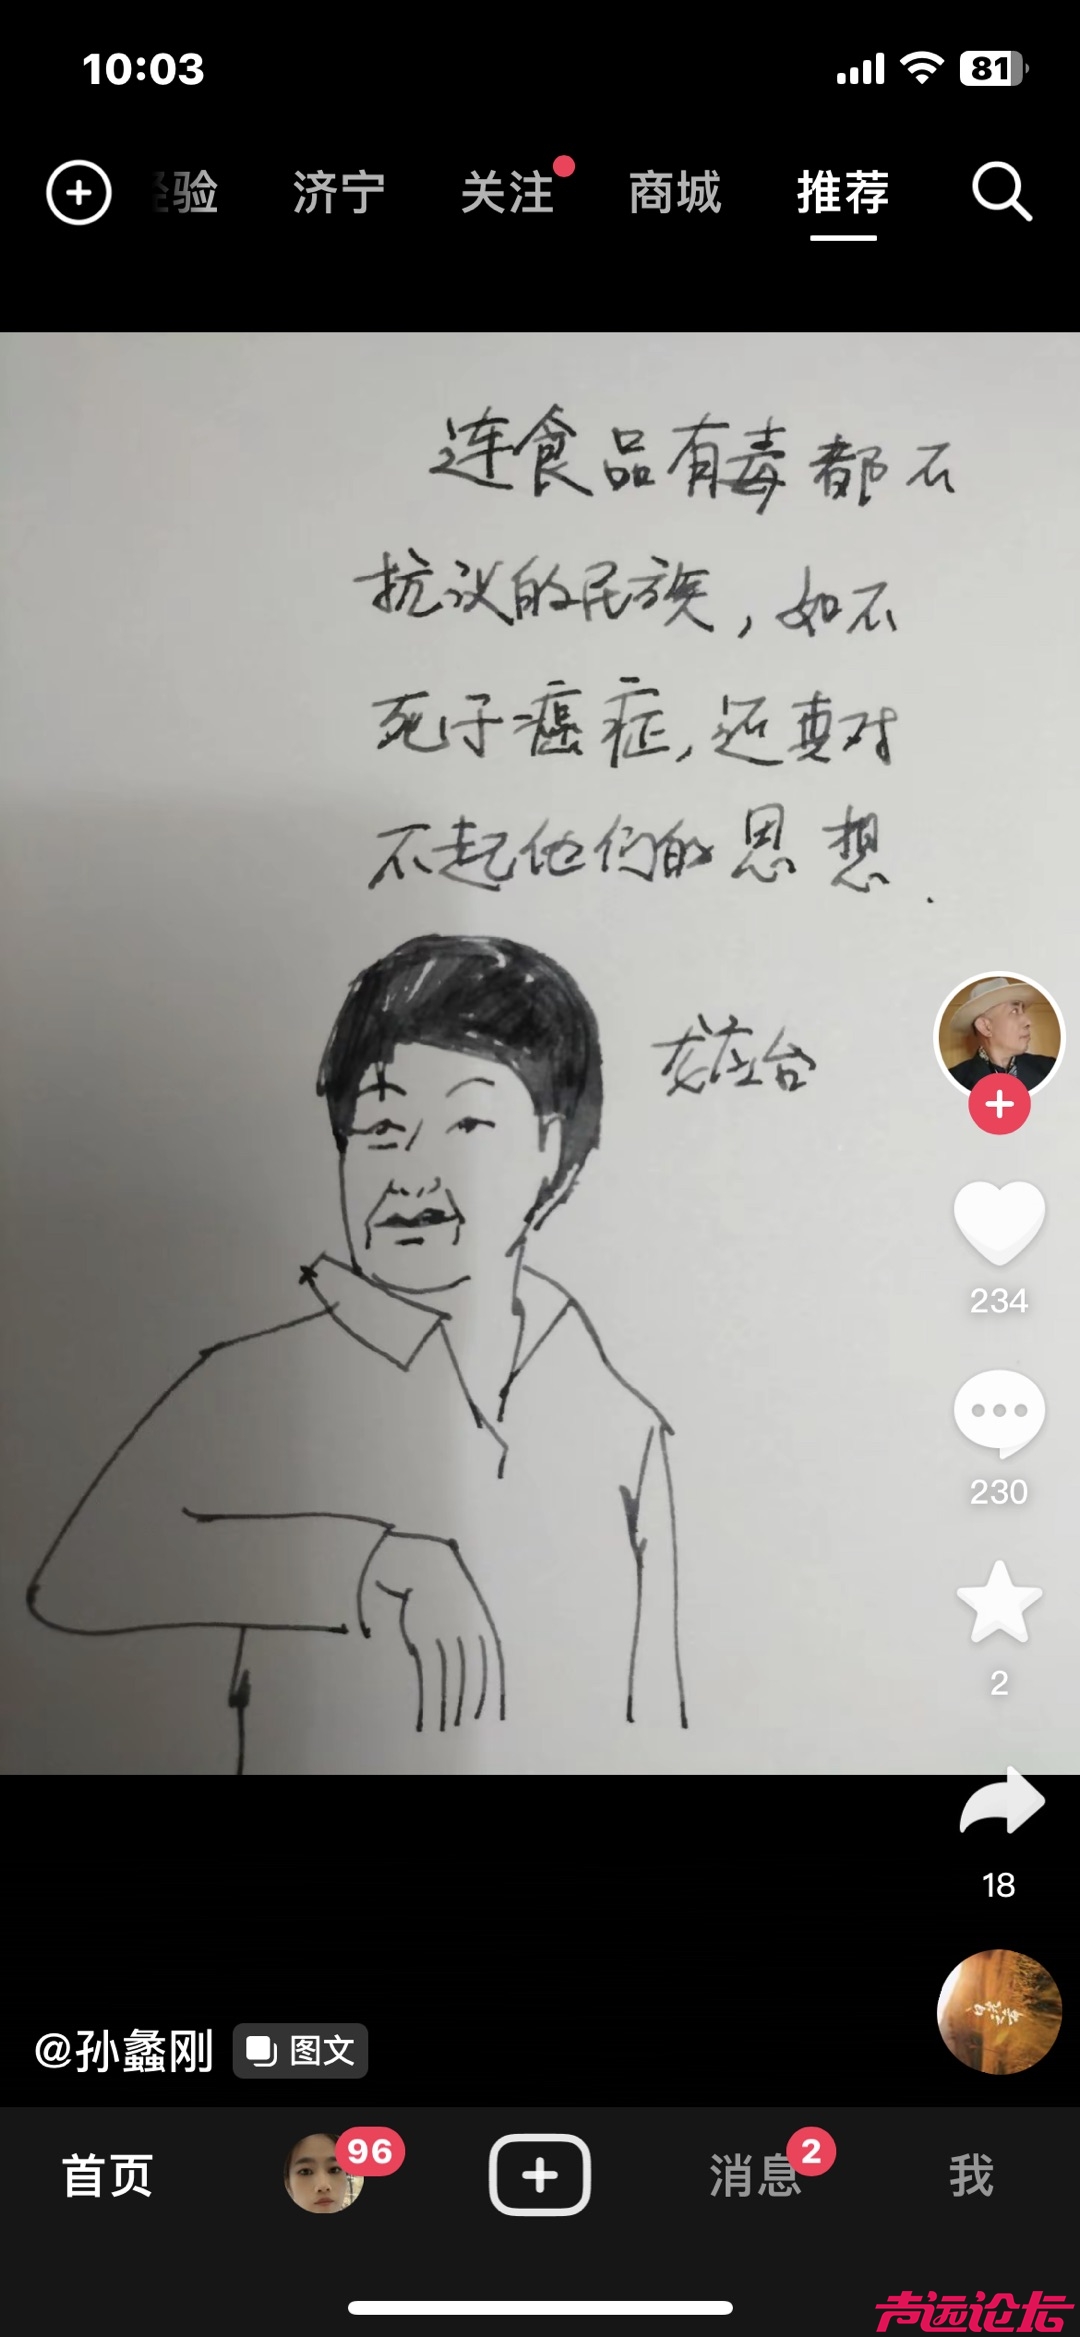 10:03
81
经验 济宁 关注 商城 推荐
连食品有毒都不
抗议的民族，如不
死于癌症，还真对
不起他们的思想.
龙应台
234
230
2
18
@孙蠡刚 图文
首页 96 消息 2 我
声远论坛